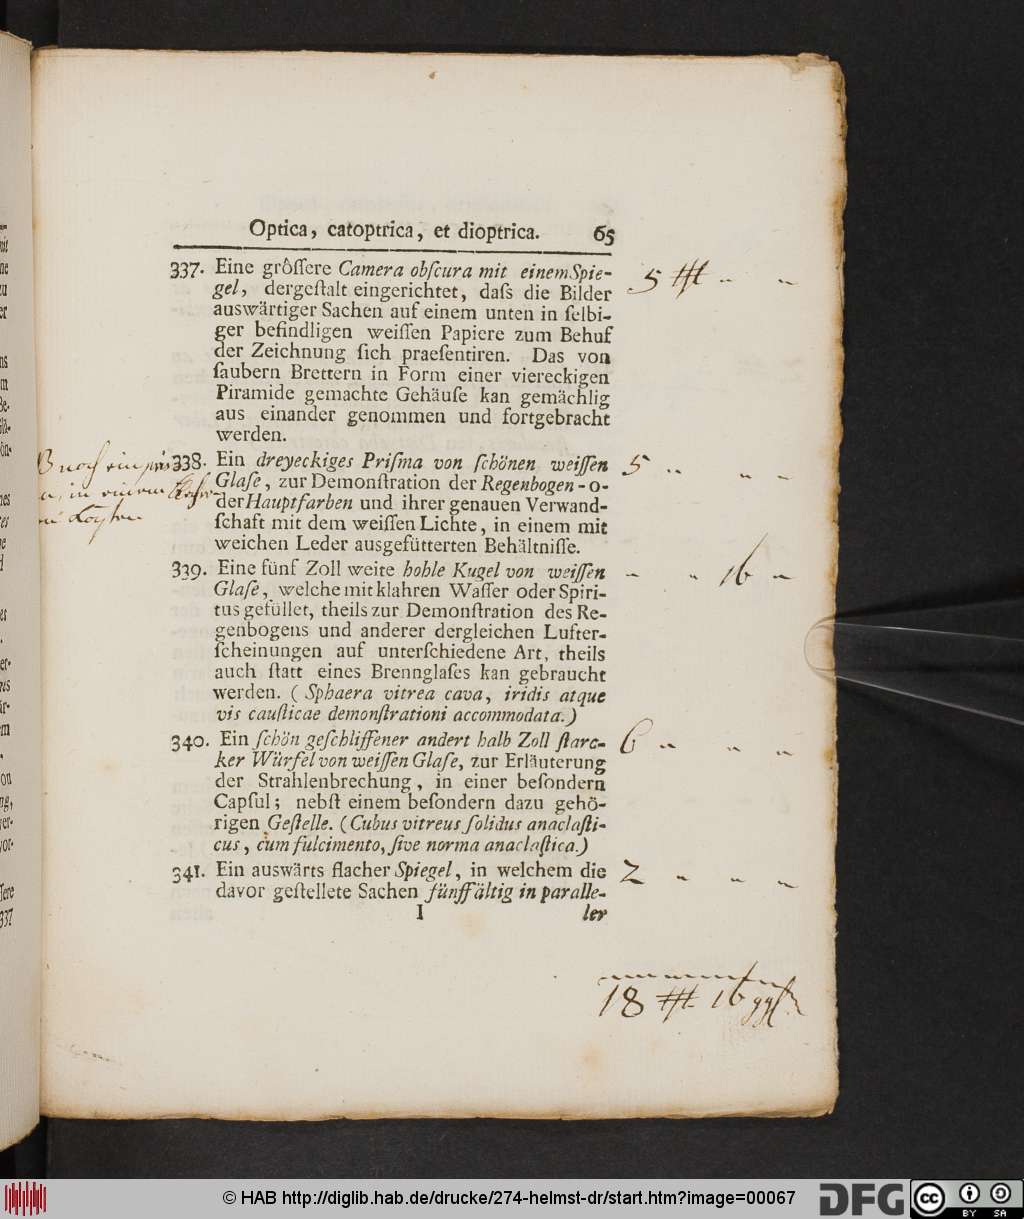 Optica, catoptrica, et dioptrica. 65
337. Eine grôſſere Camera obſcura mit einem Spie-
gel, dergeſtalt eingerichtet, daſs die Bilder
auswärtiger Sachen auf einem unten in ſelbi-
ger befindligen weiſſen Papiere zum Behuf
der Zeichnung ſich praeſentiren. Das von
ſaubern Brettern in Form einer viereckigen
Piramide gemachte Gehäuſe kan gemächlig
aus einander genommen und fortgebracht
werden.
5 " "
338. Ein dreyeckiges Priſma von ſchönen weiſſen
Glaſe, zur Demonſtration der Regenbogen-o-
der Hauptfarben und ihrer genauen Verwand-
ſchaft mit dem weiſſen Lichte, in einem mit
weichen Leder ausgefütterten Behältniſſe.
5 " " "
339. Eine fünf Zoll weite hohle Kugel von weiſſen
Glaſe, welche mit klahren Waſſer oder Spiri-
tus gefüllet, theils zur Demonſtration des Re-
genbogens und anderer dergleichen Lufter-
ſcheinungen auf unterſchiedene Art, theils
auch ſtatt eines Brennglaſes kan gebraucht
werden. (Sphaera vitrea cava, iridis atque
vis cauſticae demonſtrationi accommodata.)
" " 16 "
340. Ein ſchön geſchliffener andert halb Zoll ſtarc-
ker Würfel von weiſſen Glaſe, zur Erläuterung
der Strahlenbrechung, in einer beſondern
Capſul; nebſt einem beſondern dazu gehö-
rigen Geſtelle. (Cubus vitreus ſolidus anaclaſti-
cus, cum fulcimento, ſive norma anaclaſtica.)
6 " " "
341. Ein auswärts flacher Spiegel, in welchem die
davor geſtellete Sachen fünffältig in paralle-
I ler
2 " " "
18 16
© HAB http://diglib.hab.de/drucke/274-helmst-dr/start.htm?image=00067
DFG
cc BY SA